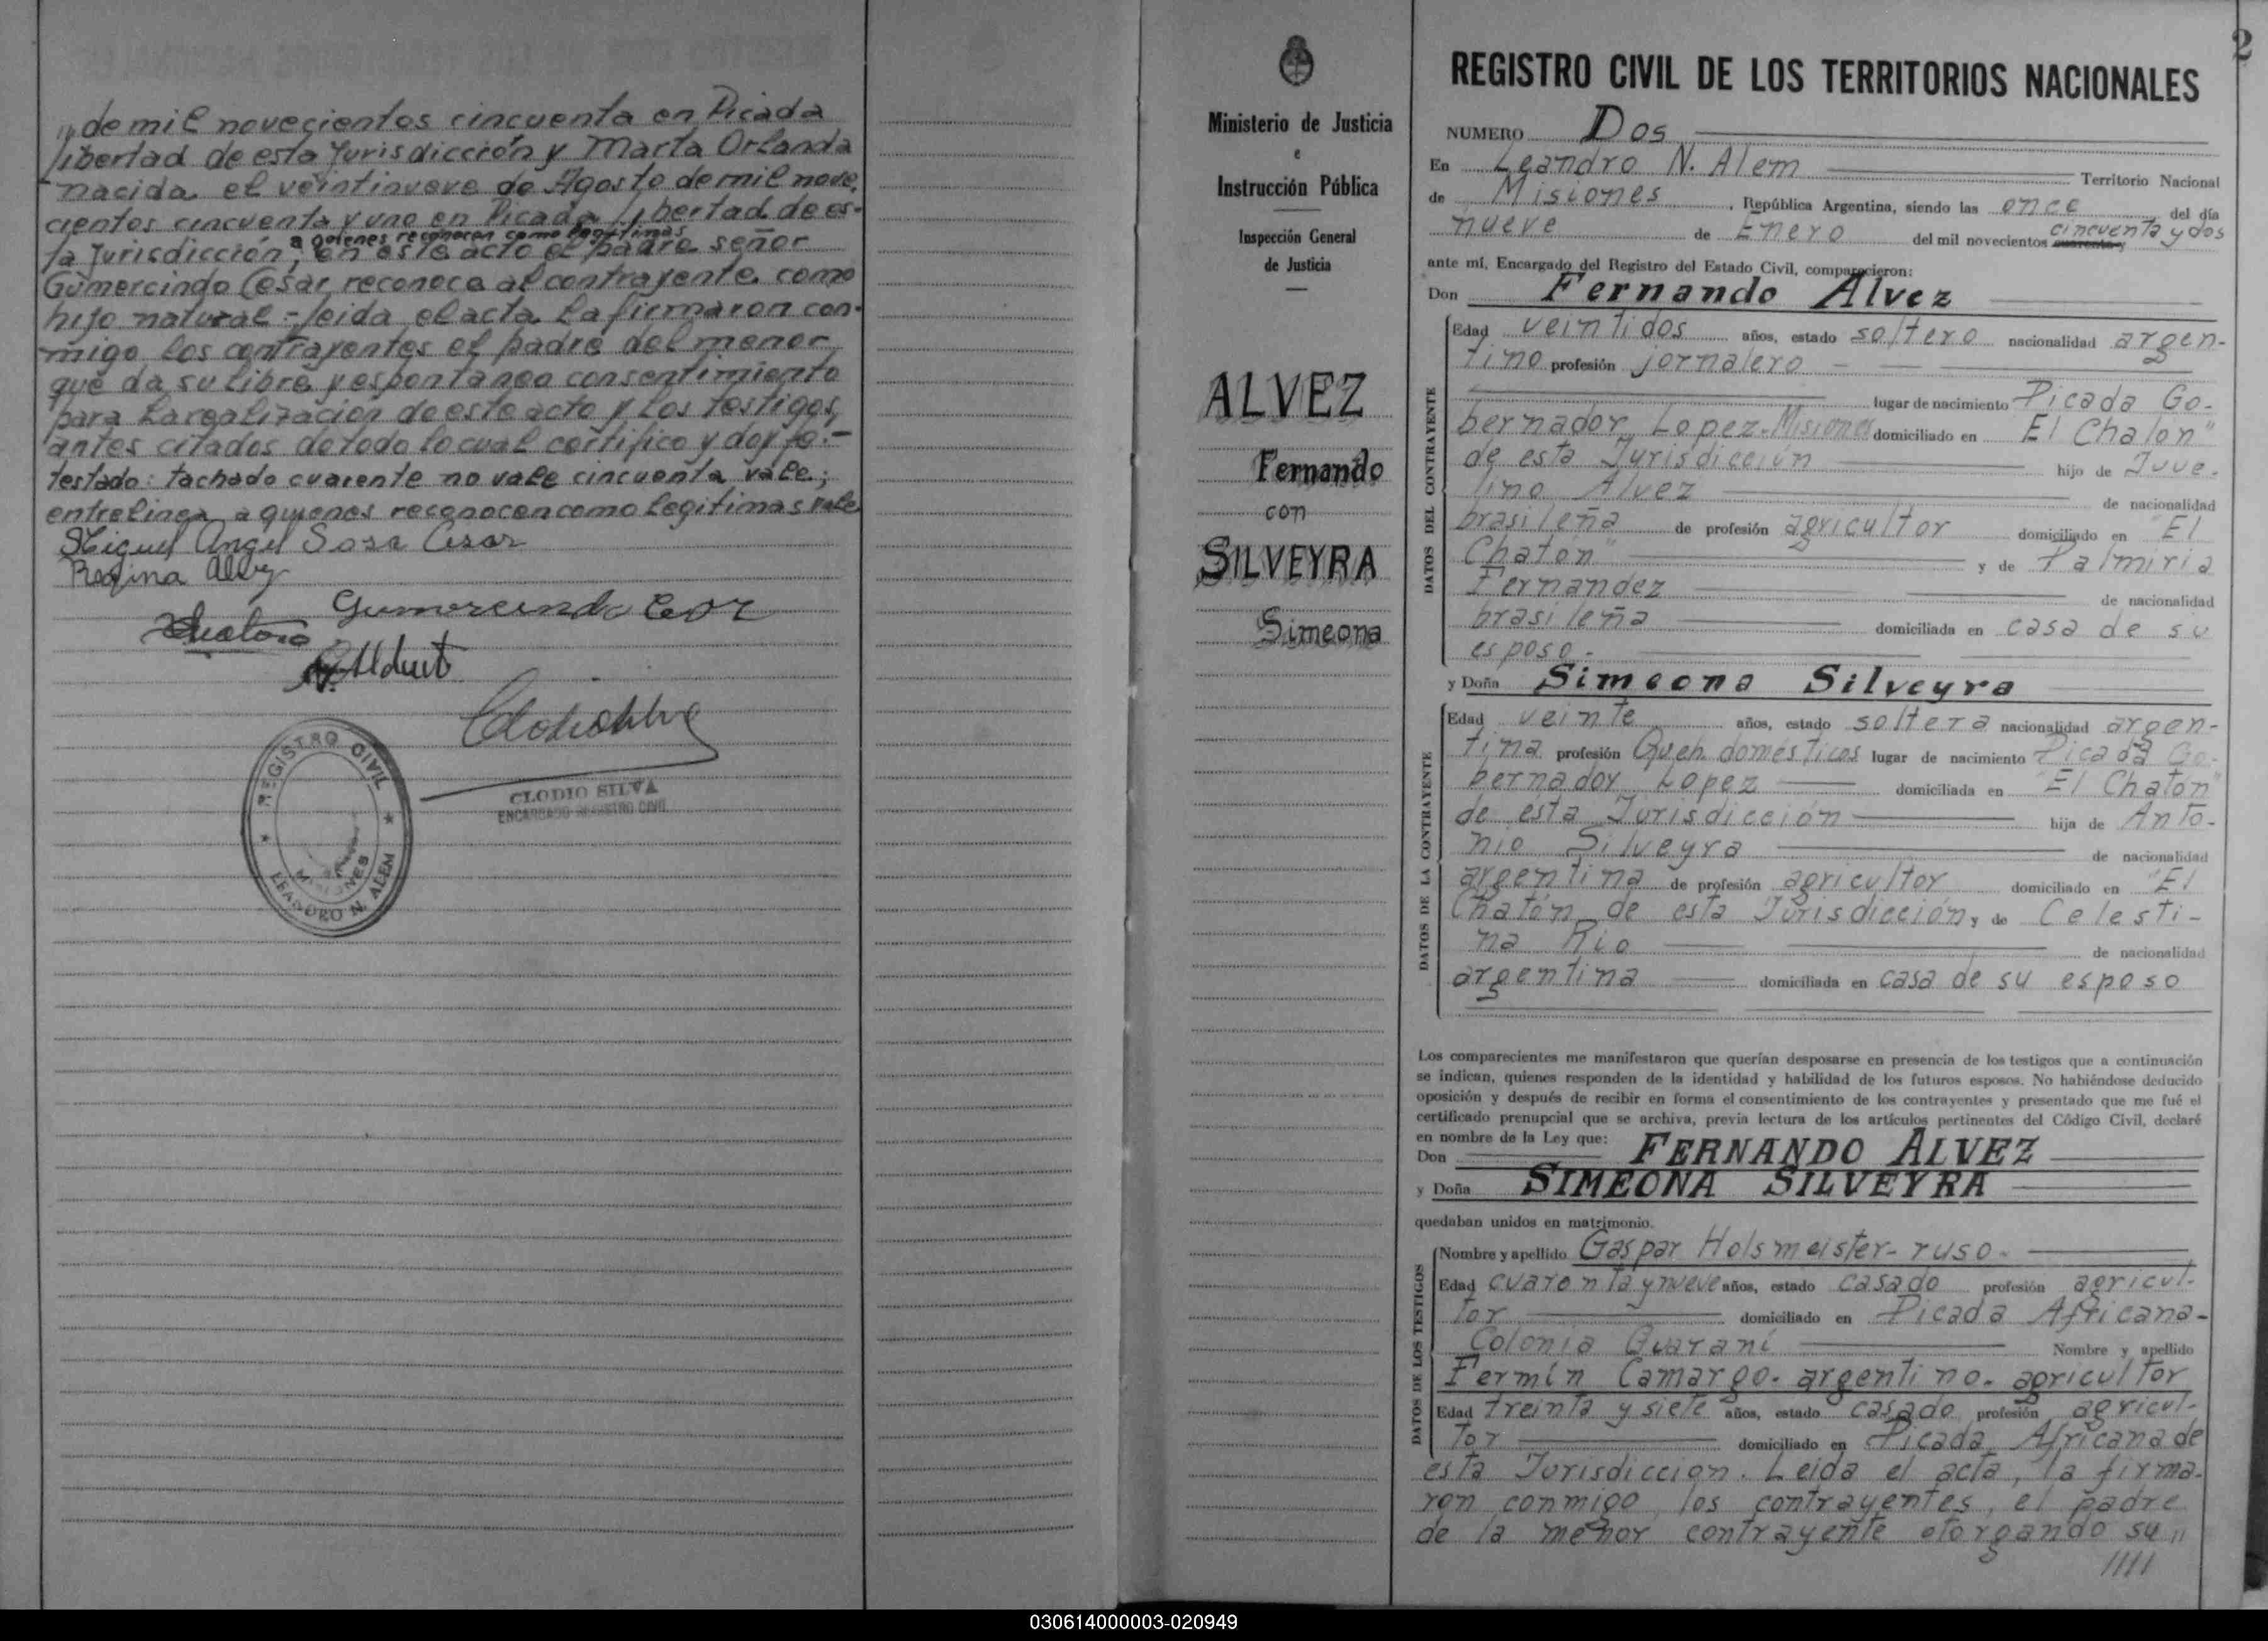 " de mil novecientos cincuenta en Picada
Libertad de esta Jurisdicción y Marta Orlanda
nacida el veintinueve de Agosto de mil nove-
cientos cincuenta y uno en Picada Libertad de es-
a quienes reconocen como legitimas
ta Jurisdicción; en este acto el padre señor
Gumercindo Cesar reconoce al contrayente como
hijo natural - leida el acta la firmaron con-
migo los contrayentes el padre del menor
que da su libre y espontaneo consentimiento
para la realizacion de este acto y los testigos
antes citados de todo lo cual certifico y doy fe.-
testado: tachado cuarente no vale cincuenta vale;
entrelinea a quienes reconocen como legitimas vale
Miguel Angel Sosa Cesar
Regina
Gumercindo
CLODIO SILVA
ENCARGADO REGISTRO CIVIL
REGISTRO CIVIL
MISIONES
LEANDRO N. ALEM
Ministerio de Justicia
e
Instrucción Pública
Inspección General
de Justicia
ALVEZ
Fernando
con
SILVEYRA
Simeona
2
REGISTRO CIVIL DE LOS TERRITORIOS NACIONALES
NUMERO Dos
En Leandro N. Alem Territorio Nacional
de Misiones, República Argentina, siendo las once del día
nueve de Enero del mil novecientos cuarenta y cincuenta y dos
ante mí, Encargado del Registro del Estado Civil, comparecieron:
Don Fernando Alvez
DATOS DEL CONTRAYENTE
Edad veintidos años, estado soltero nacionalidad argen-
tino profesión jornalero
lugar de nacimiento Picada Go-
bernador Lopez-Misiones domiciliado en El Chatón"
de esta Jurisdicción hijo de Juve-
lino Alvez de nacionalidad
brasileña de profesión agricultor domiciliado en "El
Chatón" y de Palmiria
Fernandez de nacionalidad
brasileña domiciliada en casa de su
esposo.-
y Doña Simeona Silveyra
DATOS DE LA CONTRAYENTE
Edad veinte años, estado soltera nacionalidad argen-
tina profesión Queh. domésticos lugar de nacimiento Picada Go-
bernador Lopez domiciliada en "El Chatón"
de esta Jurisdicción hija de Anto-
nio Silveyra de nacionalidad
argentina de profesión agricultor domiciliado en "El
Chatón de esta Jurisdicción y de Celesti-
na Rio de nacionalidad
argentina domiciliada en casa de su esposo
Los comparecientes me manifestaron que querían desposarse en presencia de los testigos que a continuación
se indican, quienes responden de la identidad y habilidad de los futuros esposos. No habiéndose deducido
oposición y después de recibir en forma el consentimiento de los contrayentes y presentado que me fué el
certificado prenupcial que se archiva, previa lectura de los artículos pertinentes del Código Civil, declaré
en nombre de la Ley que:
Don FERNANDO ALVEZ
y Doña SIMEONA SILVEYRA
quedaban unidos en matrimonio.
DATOS DE LOS TESTIGOS
Nombre y apellido Gaspar Holsmeister- ruso-
Edad cuarenta y nueve años, estado casado profesión agricul-
tor domiciliado en Picada Africana-
Colonia Guaraní Nombre y apellido
Fermín Camargo. argentino. agricultor
Edad treinta y siete años, estado casado profesión agricul-
tor domiciliado en Picada Africana de
esta Jurisdiccion. Leida el acta, la firma-
ron conmigo, los contrayentes, el padre
de la menor contrayente otorgando su "
////
030614000003-020949